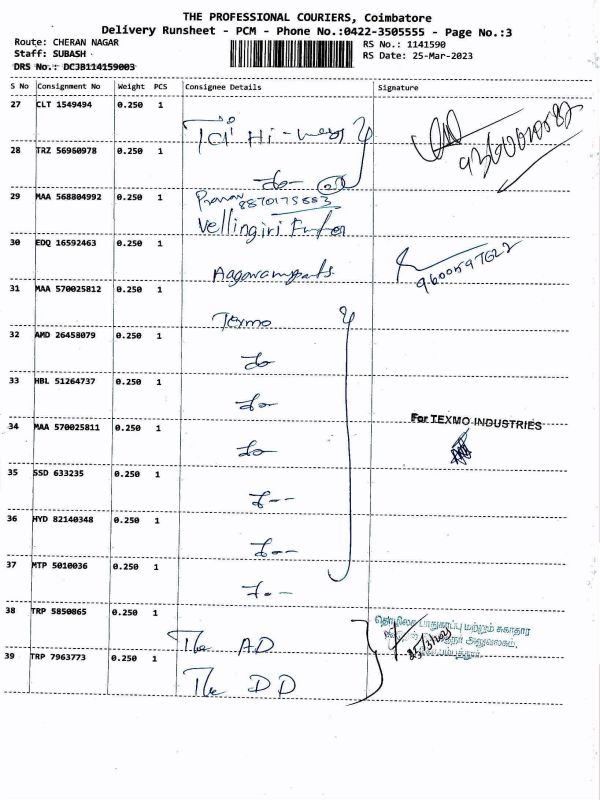 THE PROFESSIONAL COURIERS, Coimbatore
Delivery Runsheet - PCM - Phone No.:0422-3505555 - Page No.:3
Route: CHERAN NAGAR
RS No.: 1141590
Staff: SUBASH
RS Date: 25-Mar-2023
DRS No.: DCJB114159003
S No Consignment No Weight PCS Consignee Details Signature
27 CLT 1549494 0.250 1
Hi-ways
28 TRZ 56960978 0.250 1
do-
29 MAA 568804992 0.250 1
8870175883
Vellingiri
30 EDQ 16592463 0.250 1
31 MAA 570025812 0.250 1
Texmo
32 AMD 26458079 0.250 1
do
33 HBL 51264737 0.250 1
do-
For TEXMO INDUSTRIES
34 MAA 570025811 0.250 1
do
35 SSD 633235 0.250 1
36 HYD 82140348 0.250 1
37 MTP 5010036 0.250 1
38 TRP 5850865 0.250 1
பாதுகாப்பு மற்றும் சுகாதார
The AD
25/3/2023
39 TRP 7963773 0.250 1
The DD